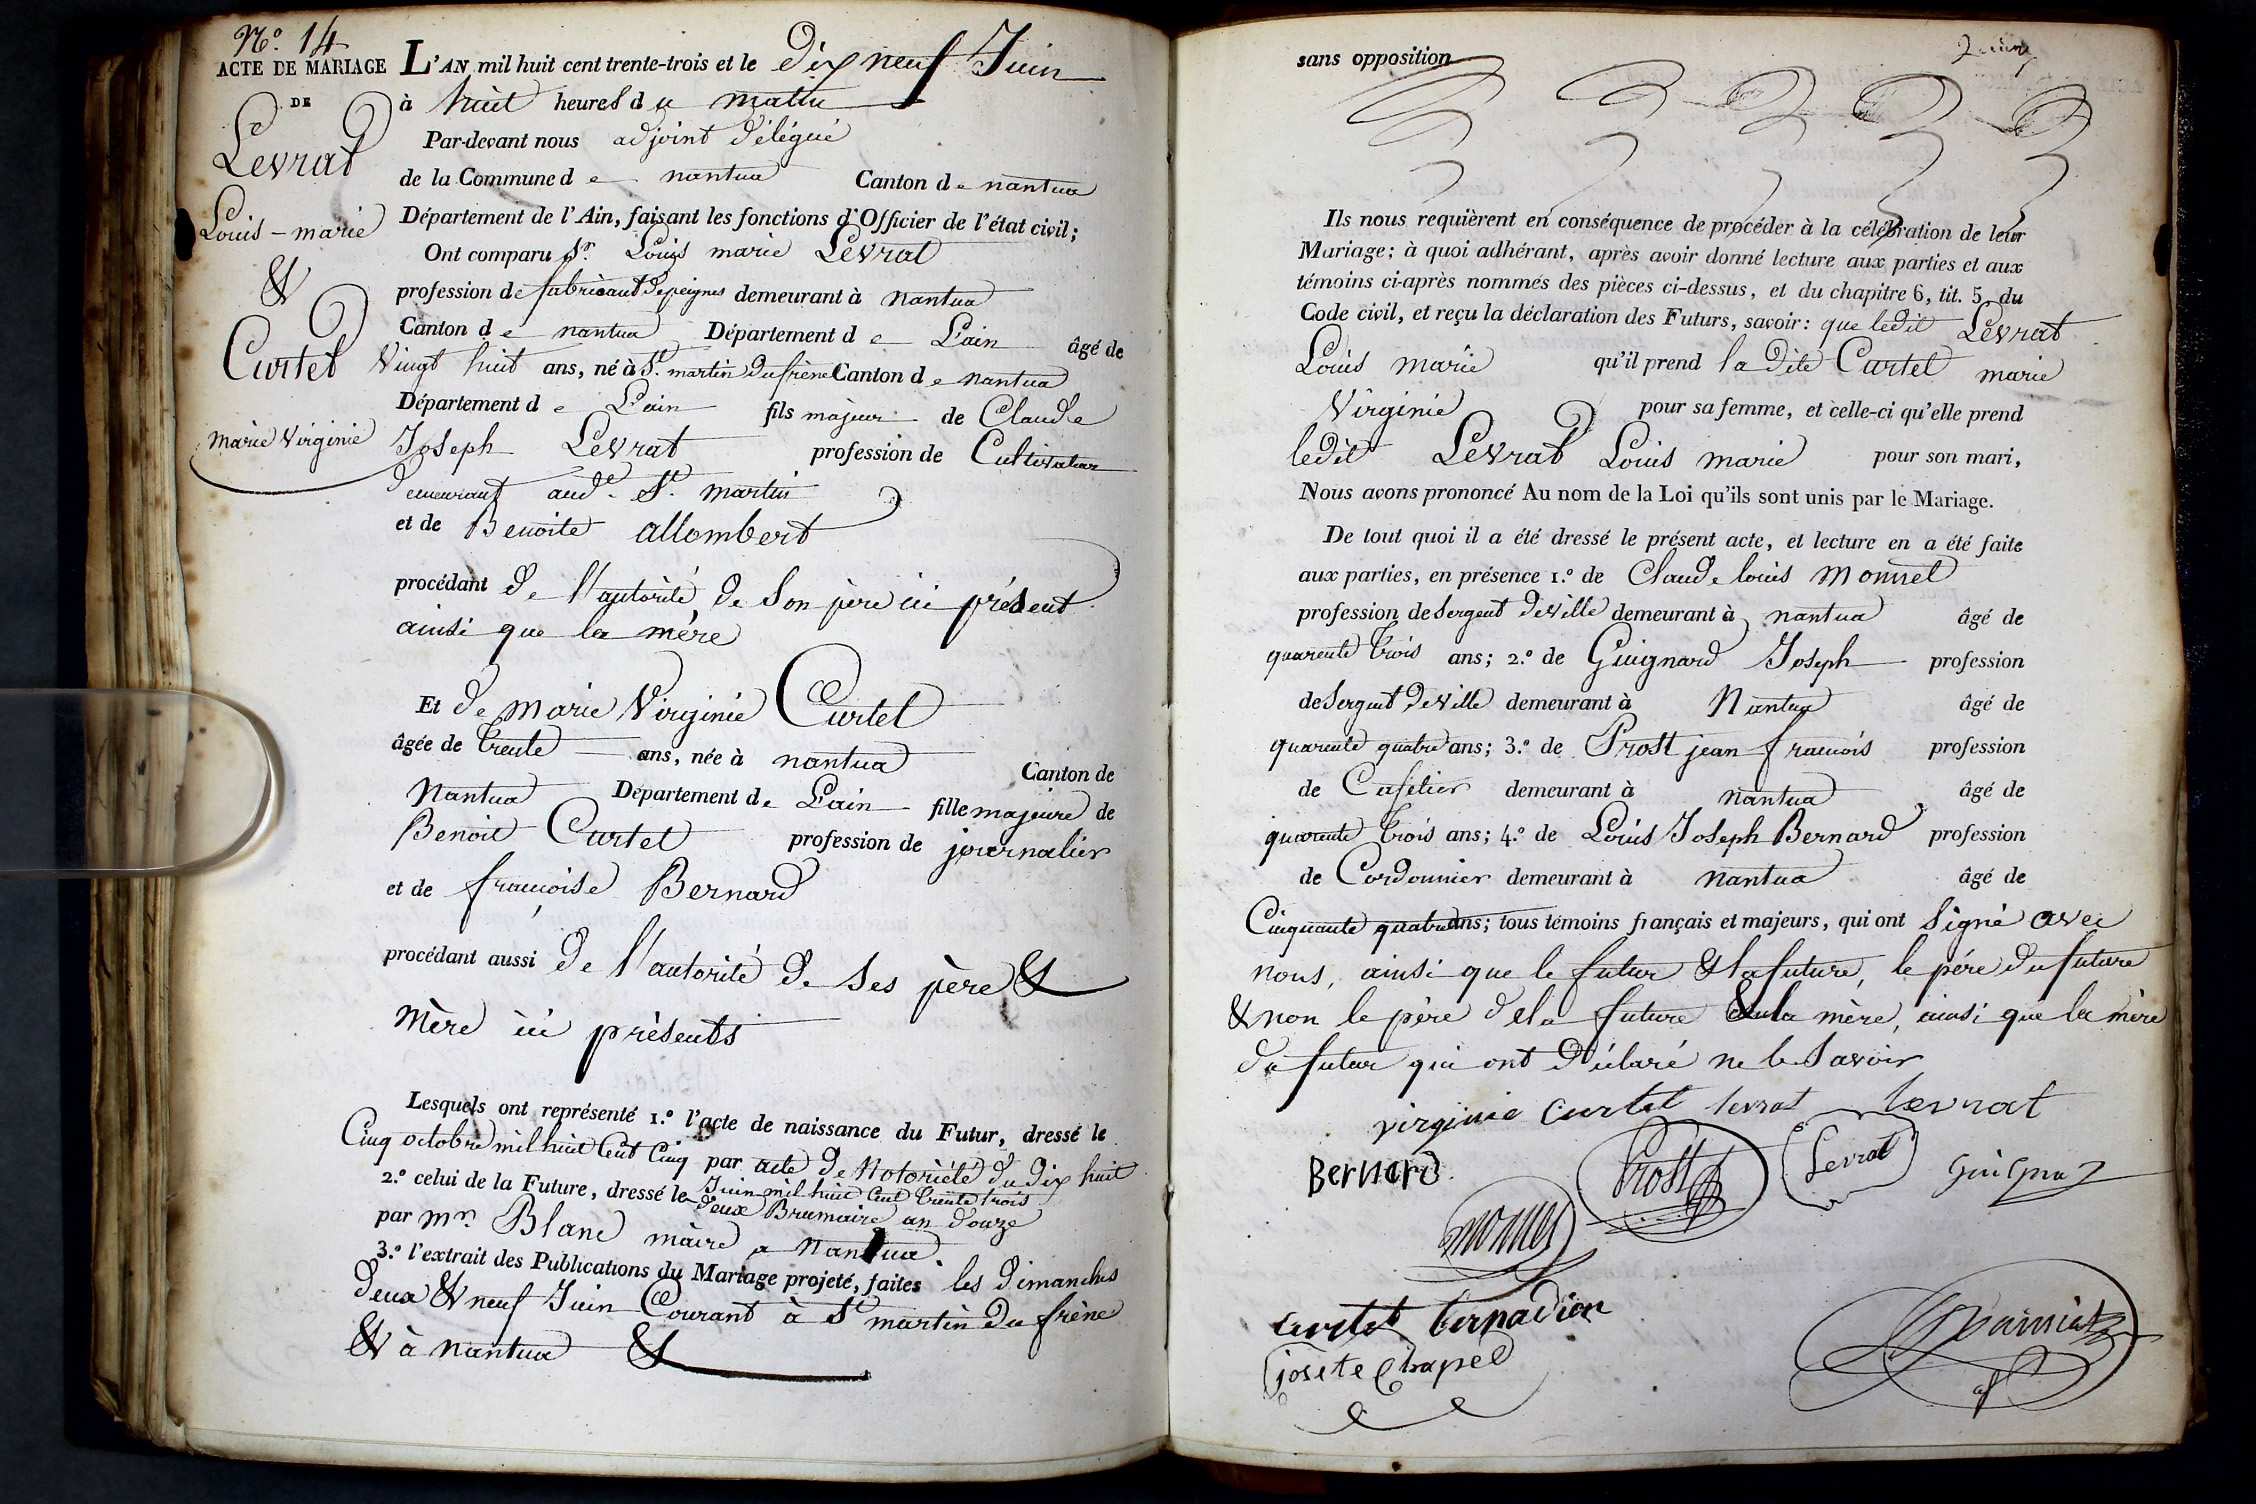 N.o 14
ACTE DE MARIAGE
DE
Levrat
Louis - marie
&
Curtet
marie Virginie
L'AN mil huit cent trente-trois et le dix neuf Juin
à huit heures du matin
Par-devant nous adjoint délégué
de la Commune de nantua Canton de nantua
Département de l'Ain, faisant les fonctions d'Officier de l'état civil;
Ont comparu Sr. Louis marie Levrat
profession de fabricant de peignes demeurant à Nantua
Canton de nantua Département de L'ain âgé de
Vingt huit ans, né à St. martin du frêne Canton de nantua
Département de L'ain fils majeur de Claude
Joseph Levrat profession de Cultivateur
demeurant aud. St. martin
et de Benoite allombert
procédant de l'autorité de son père ici présent
ainsi que la mère
Et de marie Virginie Curtet
âgée de trente ans, née à nantua Canton de
Nantua Département de L'ain fille majeure de
Benoit Curtet profession de journalier
et de françoise Bernard
procédant aussi de l'autorité de ses père &
mère ici présents
Lesquels ont représenté 1.o l'acte de naissance du Futur, dressé le
Cinq octobre mil huit Cent Cinq par acte de Notoriété du dix huit
Juin mil huit Cent trente trois
2.o celui de la Future, dressé le deux Brumaire an douze
par mr. Blanc maire a Nantua
3.o l'extrait des Publications du Mariage projeté, faites les dimanches
deux & neuf Juin Courant à St martin du frêne
& à nantua &
sans opposition
Ils nous requièrent en conséquence de procéder à la célébration de leur
Mariage; à quoi adhérant, après avoir donné lecture aux parties et aux
témoins ci-après nommés des pièces ci-dessus, et du chapitre 6, tit. 5, du
Code civil, et reçu la déclaration des Futurs, savoir: que ledit Levrat
Louis marie qu'il prend la dite Curtet marie
Virginie pour sa femme, et celle-ci qu'elle prend
ledit Levrat Louis marie pour son mari,
Nous avons prononcé Au nom de la Loi qu'ils sont unis par le Mariage.
De tout quoi il a été dressé le présent acte, et lecture en a été faite
aux parties, en présence 1.o de Claude louis Monnet
profession de Sergent de Ville demeurant à nantua âgé de
quarente trois ans; 2.o de Guignard Joseph profession
de Sergent de Ville demeurant à Nantua âgé de
quarente quatre ans; 3.o de Prost jean francois profession
de Cafetier demeurant à nantua âgé de
quarente trois ans; 4.o de Louis Joseph Bernard profession
de Cordonnier demeurant à Nantua âgé de
Cinquante quatre ans; tous témoins français et majeurs, qui ont Signé avec
nous, ainsi que le futur & la future, le père du future
& non le père de la future & la mère, ainsi que la mère
du futur qui ont déclaré ne le Savoir
virginie curtet levrat Levrat
Bernard Prost Levrat Guignard
monnet
curtet
josete Chapel